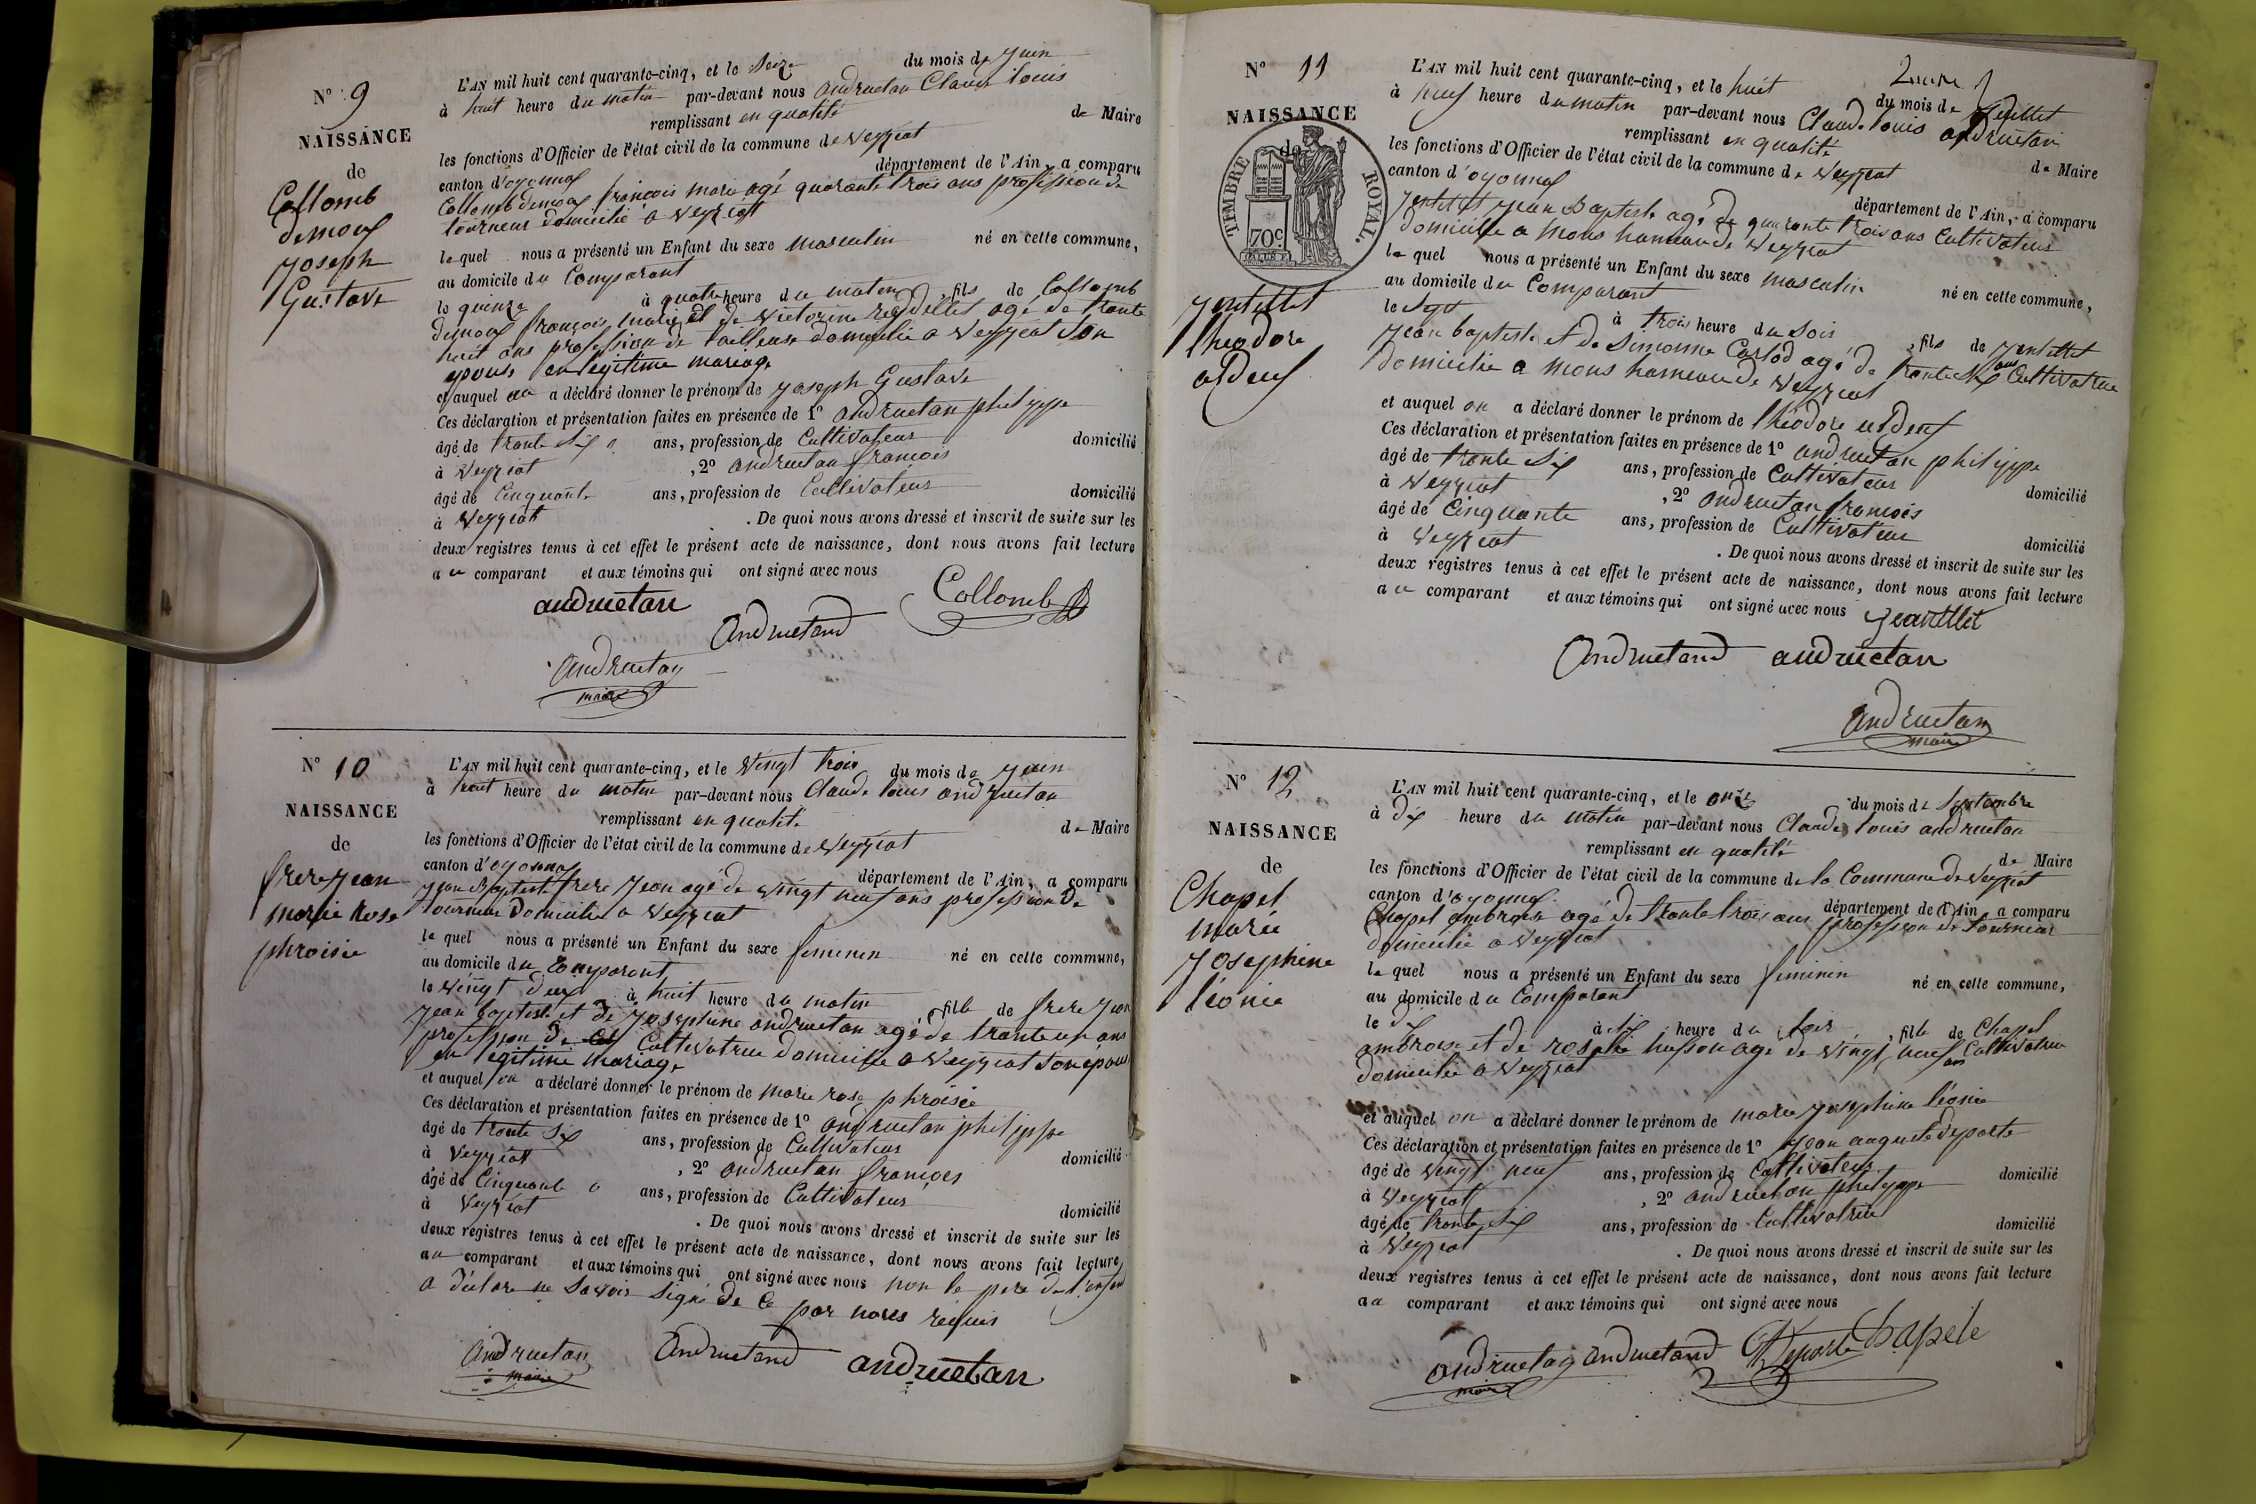 N° 9
NAISSANCE
de
Collomb
demoux
Joseph
Gustave
L'AN mil huit cent quarante-cinq, et le Seize du mois de Juin
à huit heure du matin par-devant nous andruetan Claude louis
remplissant en qualité de Maire
les fonctions d'Officier de l'état civil de la commune de Veyziat
canton d'oyonnax département de l'Ain, a comparu
Collomb demoux françois marie agé quarante trois ans profession de
tourneur domicilié a Veyziat
lequel nous a présenté un Enfant du sexe masculin né en cette commune,
au domicile du Comparant
le quinze à quatre heure du matin, fils de Collomb
demoux françois marie et de victorine agé de trente
huit ans profession de tailleuse domicilie a Veyziat Son
epouse en legitime mariage
et auquel on a déclaré donner le prénom de Joseph Gustave
Ces déclaration et présentation faites en présence de 1° andruetan philippe
âgé de trente Six ans, profession de Cultivateur domicilié
à Veyziat , 2° andruetan francois
âgé de Cinquante ans, profession de Cultivateur domicilié
à Veyziat . De quoi nous avons dressé et inscrit de suite sur les
deux registres tenus à cet effet le présent acte de naissance, dont nous avons fait lecture
au comparant et aux témoins qui ont signé avec nous
andruetan Collomb
andruetand
andruetan
maire
N° 10
NAISSANCE
de
frere Jean
marie Rose
phroisie
L'AN mil huit cent quarante-cinq, et le Vingt trois du mois de Juin
à huit heure du matin par-devant nous Claude louis andruetan
remplissant en qualité de Maire
les fonctions d'Officier de l'état civil de la commune de Veyziat
canton d'oyonnax département de l'Ain, a comparu
Jean Baptiste frere Jean agé de vingt neuf ans profession de
tourneur domicilie a Veyziat
lequel nous a présenté un Enfant du sexe feminin né en cette commune,
au domicile du Comparant
le vingt deux à huit heure du matin , fille de frere Jean
Jean baptiste et de Josephine andruetan agé de trente un ans
profession de Cultivatrice domicilie a Veyziat Son epouse
en legitime mariage
et auquel on a déclaré donner le prénom de marie rose phroisie
Ces déclaration et présentation faites en présence de 1° andruetan philippe
âgé de trente Six ans, profession de Cultivateur domicilié
à Veyziat , 2° andruetan francois
âgé de Cinquante ans, profession de Cultivateur domicilié
à Veyziat . De quoi nous avons dressé et inscrit de suite sur les
deux registres tenus à cet effet le présent acte de naissance, dont nous avons fait lecture
au comparant et aux témoins qui ont signé avec nous non le pere de l'enfant
a déclare ne Savoir signé de ce par nous requis
andruetan andruetand andruetan
maire
N° 11
NAISSANCE
de
TIMBRE ROYAL.
70c
Theodore
L'AN mil huit cent quarante-cinq, et le huit du mois de Juillet
à neuf heure du matin par-devant nous Claude louis andruetan
remplissant en qualité de Maire
les fonctions d'Officier de l'état civil de la commune de Veyziat
canton d'oyonnax département de l'Ain, a comparu
Jean Baptiste agé de quarante trois ans Cultivateur
domicilie a mons hameau de Veyziat
lequel nous a présenté un Enfant du sexe masculin né en cette commune,
au domicile du Comparant
le Sept à trois heure du Soir , fils de
Jean baptiste et de Simonne Carlod agé de trente Six ans Cultivatrice
domicilie a mons hameau de Veyziat
et auquel on a déclaré donner le prénom de théodore
Ces déclaration et présentation faites en présence de 1° andruetan philippe
âgé de trente Six ans, profession de Cultivateur domicilié
à Veyziat , 2° andruetan francois
âgé de Cinquante ans, profession de Cultivateur domicilié
à Veyziat . De quoi nous avons dressé et inscrit de suite sur les
deux registres tenus à cet effet le présent acte de naissance, dont nous avons fait lecture
au comparant et aux témoins qui ont signé avec nous
andruetand andruetan
andruetan
maire
N° 12
NAISSANCE
de
Chapel
marie
Josephine
léonie
L'AN mil huit cent quarante-cinq, et le onze du mois de Septembre
à dix heure du matin par-devant nous Claude louis andruetan
remplissant en qualité de Maire
les fonctions d'Officier de l'état civil de la commune de la Commune de Veyziat
canton d'oyonnax département de l'Ain a comparu
Chapel ambroise agé de trente trois ans profession de tourneur
domicilie a Veyziat
lequel nous a présenté un Enfant du sexe feminin né en cette commune,
au domicile du Comparant
le dix à Six heure du Soir , fille de Chapel
ambroise et de rosalie husson agé de vingt neuf ans Cultivatrice
domicilie a Veyziat
et auquel on a déclaré donner le prénom de marie Josephine léonie
Ces déclaration et présentation faites en présence de 1° Jean auguste deporte
âgé de vingt neuf ans, profession de Cultivateur domicilié
à Veyziat , 2° andruetan philippe
âgé de trente Six ans, profession de Cultivateur domicilié
à Veyziat . De quoi nous avons dressé et inscrit de suite sur les
deux registres tenus à cet effet le présent acte de naissance, dont nous avons fait lecture
au comparant et aux témoins qui ont signé avec nous
andruetan andruetand Deporte Chapele
maire